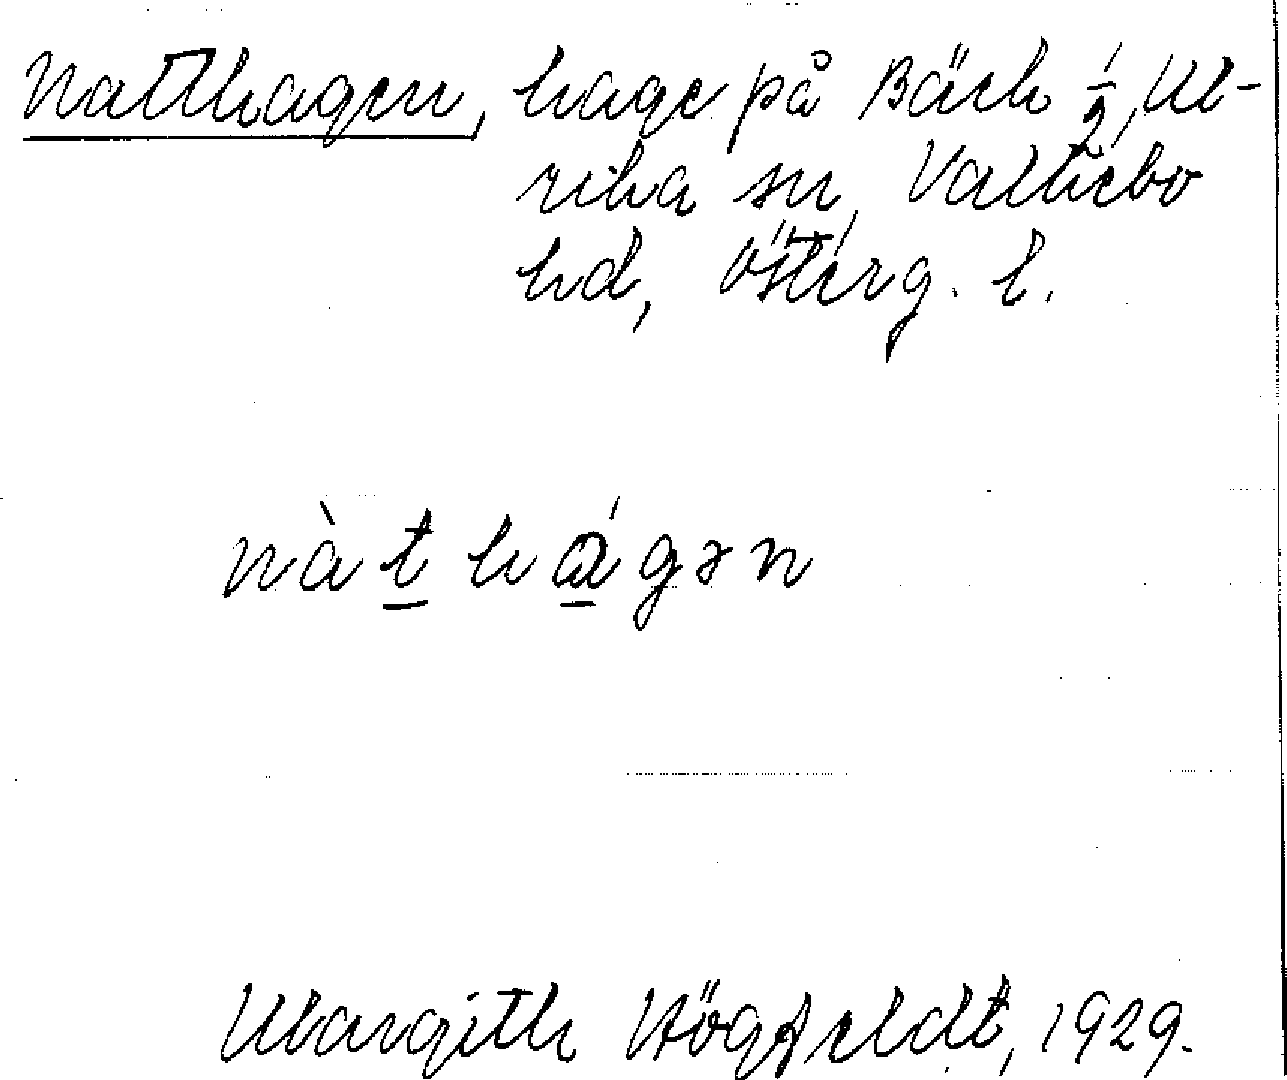 Natthagen, hage på Bäck 1/2, Ul-
rika sn, Valkebo
hd, Österg. l.
nàt hágən
Margith Högfeldt, 1929.